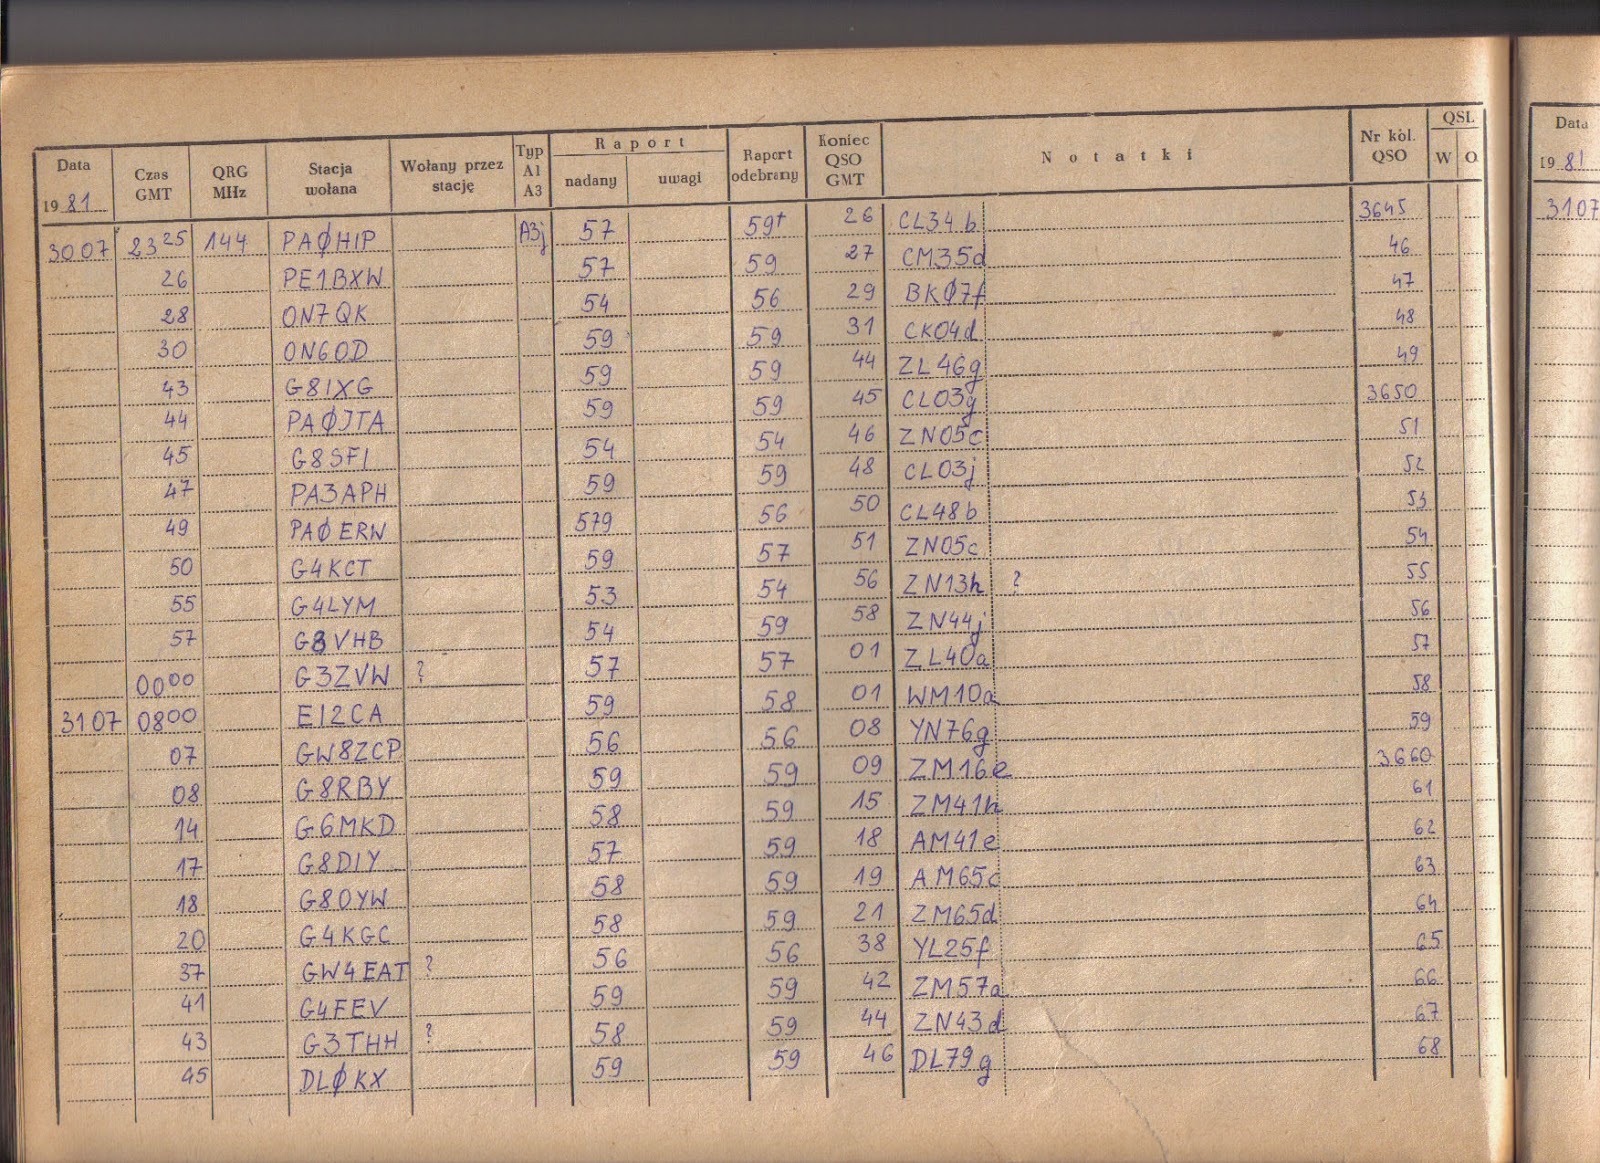 Data 1981 Czas GMT QRG MHz Stacja wołana Wołany przez stację Typ A1 A3 Raport nadany uwagi Raport odebrany Koniec QSO GMT Notatki Nr kol. QSO QSL W O Data 1981
3007 2325 144 PAØHIP A3j 57 59+ 26 CL34b 3645 3107
26 PE1BXW 57 59 27 CM35d 46
28 ON7QK 54 56 29 BKØ7f 47
30 ON6OD 59 59 31 CK04d 48
43 G8IXG 59 59 44 ZL46g 49
44 PAØJTA 59 59 45 CL03g 3650
45 G8SFI 54 54 46 ZN05c 51
47 PA3APH 59 59 48 CL03j 52
49 PAØERN 579 56 50 CL48b 53
50 G4KCT 59 57 51 ZN05c 54
55 G4LYM 53 54 56 ZN13h ? 55
57 G8VHB 54 59 58 ZN44j 56
0000 G3ZVW ? 57 57 01 ZL40a 57
3107 0800 EI2CA 59 58 01 WM10a 58
07 GW8ZCP 56 56 08 YN76g 59
08 G8RBY 59 59 09 ZM16e 3660
14 G6MKD 58 59 15 ZM41h 61
17 G8DIY 57 59 18 AM41e 62
18 G8OYW 58 59 19 AM65c 63
20 G4KGC 58 59 21 ZM65d 64
37 GW4EAT ? 56 56 38 YL25f 65
41 G4FEV 59 59 42 ZM57a 66
43 G3THH ? 58 59 44 ZN43d 67
45 DLØKX 59 59 46 DL79g 68